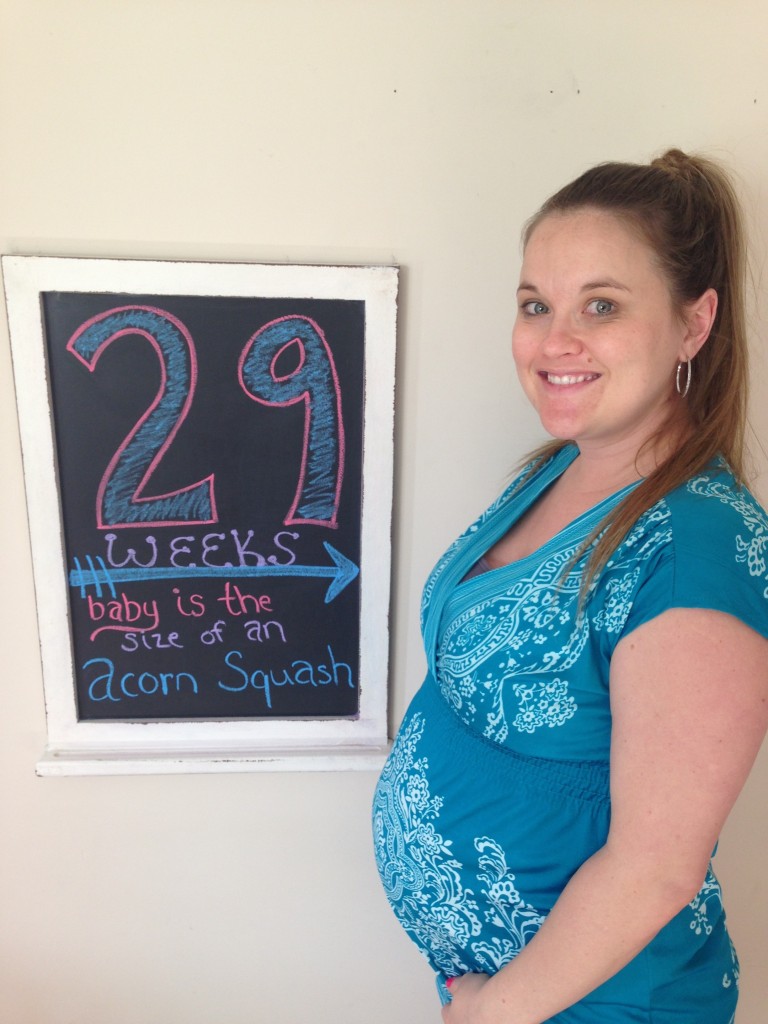 29
WEEKS
baby is the
size of an
acorn Squash